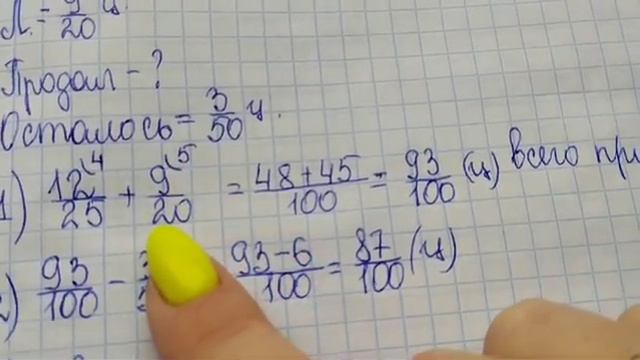 Л. = 9/20 ц.
Продал - ?
Осталось = 3/50 ц.
1) 12⁴/25 + 9⁵/20 = 48+45/100 = 93/100 (ц) всего
) 93/100 - 93-6/100 = 87/100 (ц)